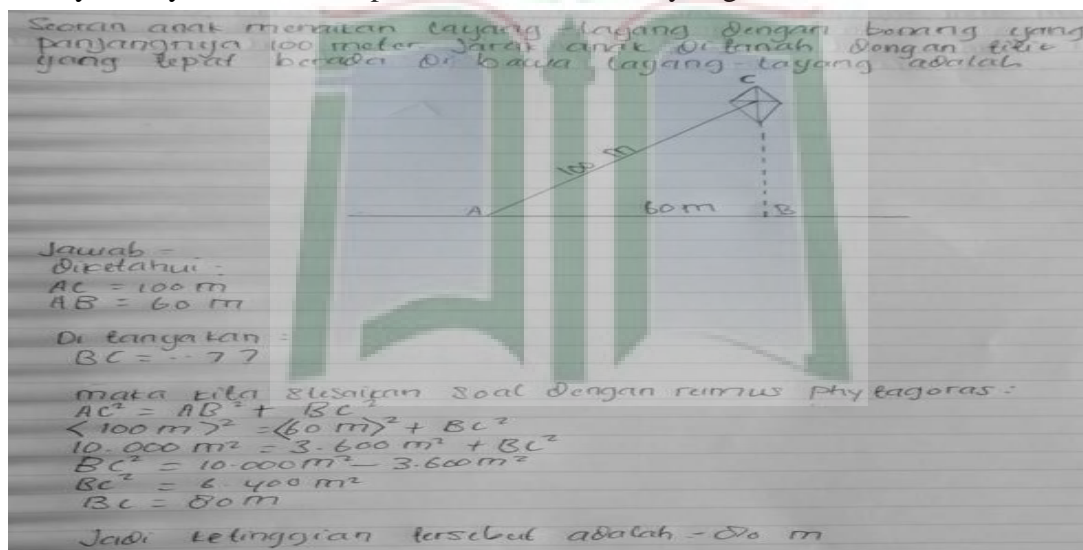 Seoran anak menaikan layang-layang dengan benang yang
panjangnya 100 meter jarak anak di tanah dengan titik
yang tepat berada di bawa layang-layang adalah
C
100 m
A 60 m B
Jawab =
Diketahui :
AC = 100 m
AB = 60 m
Di tanyakan :
BC = -- ? ?
maka kita slesaikan soal dengan rumus phytagoras :
AC² = AB² + BC²
<100 m>² = <60 m>² + BC²
10.000 m² = 3.600 m² + BC²
BC² = 10.000 m² - 3.600 m²
BC² = 6.400 m²
BC = 80 m
Jadi ketinggian tersebut adalah - 80 m